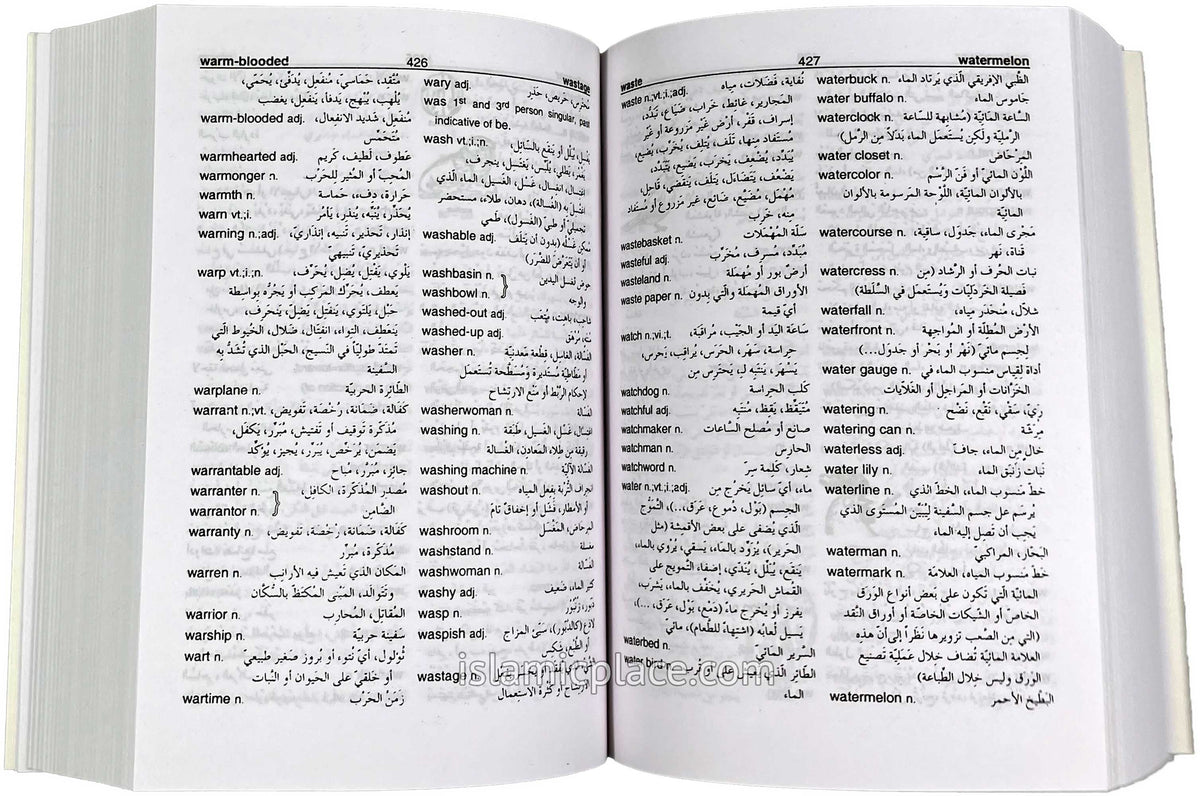 warm-blooded 426 wastage
مُتَّقِد، حَمَاسيّ، مُنفَعِل، يُدَفِّئ، يُحَمّى،
يُلْهِب، يُبْهِج، يَدفأ، يَنفَعِل، يغضب
warm-blooded adj. مُنفَعِل، شديد الانفِعال،
مُتَحَمِّس
warmhearted adj. عَطوف، لَطيف، كَريم
warmonger n. المُحِبّ أو المُثير للحَرْب
warmth n. حَرارة، دِفء، حَماسة
warn vt.;i. يُحَذِّر، يُنَبِّه، يُنذِر، يَأمُر
warning n.;adj. إنذار، تَحذير، تَنبيه، إنذاريّ،
تَحذيريّ، تَنبيهيّ
warp vt.;i.;n. يَلْوي، يَفْتِل، يُضِل، يُحَرِّف،
يَعطِف، يُحَرِّك المَركِب أو يَجُرُّه بواسِطة
حَبْل، يلتوي، يَنفَتِل، يَضِلّ، يَنحَرِف،
يَنعَطِف، التِواء، انفِتال، ضَلال، الخُيوط الّتي
تَمتَدّ طوليّاً في النَسيج، الحَبْل الذي تُشَدُّ به
السَفينة
warplane n. الطَائِرة الحَربيَّة
warrant n.;vt. كَفالة، ضَمانة، رُخْصَة، تَفويض،
مُذكِّرة تَوقيف أو تَفتيش، مُبَرِّر، يَكفَل،
يَضمَن، يُرَخِّص، يُبَرِّر، يجيز، يؤكِّد
warrantable adj. جائِز، مُبَرَّر، مُباح
warranter n. مُصدِر المُذكِّرة، الكافِل،
warrantor n. الضَّامِن
warranty n. كَفالة، ضَمانة، رُخصَة، تَفويض،
مُذكِّرة، مُبَرِّر
warren n. المَكان الذي تَعيش فيه الأرانِب
وتَتَوالَد، المَبْنى المُكتَظّ بالسُكَّان
warrior n. المُقاتِل، المُحارِب
warship n. سَفينة حربيّة
wart n. ثُؤلول، أيّ نُتوء أو بُروز صغير طبيعيّ
أو خَلقيّ على الحَيوان أو النَبات
wartime n. زَمَنُ الحَرْب
wary adj. مُحتَرِس، حَريص، حَذِر
was 1st and 3rd person singular, past
indicative of be.
wash vt.;i.;n. يغسِل، يُبَلِّل أو يَنقَع بالسَّائِل،
washable adj. مُمكِن غَسْلُه (بدون أن يَتْلَف
أو أن يَتَعَرَّض للضَّرَر)
washbasin n. حوض لغسل اليدين
washbowl n. والوجه
washed-out adj. شاحِب، باهِت، مُتْعَب
washed-up adj.
washer n. الغسَّالة، الغاسِل، قِطعة مَعدنيَّة
أو مَطّاطيَّة مُستَديرة ومُسَطَّحة تُستَعمَل
لإحكام الرَّبْط أو مَنْع الارتِشاح
washerwoman n. الغسَّالة
washing n.
washing machine n. الغسّالة الآليَّة
washout n. انجِراف التُّربة بفعل المياه
أو الأمطار، فَشَل أو إخفاق تامّ
washroom n. المِرحاض، المَغْسَل
washstand n. مغسلة
washwoman n. الغسَّالة
washy adj. كثير الماء، ضَعيف
wasp n. دَبّور، زُنْبُور
waspish adj. لاذِع (كالدَّبّور)، سَيّئ المزاج
أو الطَّبْع
wastage n.
أو كَثرة الاستِعمال
waste 427 watermelon
waste n.;vt.;i.;adj. نُفاية، فَضَلات، مياه
المَجارير، غائِط، خَراب، ضَيَاع، تَبَدُّد،
إسراف، قَفْر، أرض غَير مَزروعة أو غَير
مُستَفاد مِنها، تَلَف، يُتلِف، يُخَرِّب، يُضيع،
يُبَدِّد، يُضْعِف، يَخْرَب، يَضيع، يَتَبَدَّد،
يَضْعُف، يَتَضاءَل، يَتْلَف، يَنقَضي، قاحِل،
مُهْمَل، مُضَيَّع، ضائِع، غير مَزروع أو مُستَفاد
مِنه، خَرِب
wastebasket n. سَلَّة المُهْمَلات
wasteful adj. مُبَدِّد، مُسرِف، مُخَرِّب
wasteland n. أرضٌ بور أو مُهْمَلة
waste paper n. الأوراق المُهْمَلة والَّتي بِدون
أيّ قيمة
watch n.;vi.;t. ساعَة اليَد أو الجَيْب، مُراقَبة،
حِراسة، سَهَر، الحَرَس، يُراقِب، يَحرُس،
يَسْهَر، يَنتَبِه لـ، يَحتَرِس مِن
watchdog n. كَلب الحِراسة
watchful adj. مُتَيَقِّظ، يَقِظ، مُنْتَبِه
watchmaker n. صانِع أو مُصلِح السَّاعات
watchman n. الحارِس
watchword n. شِعار، كَلِمة سِرّ
water n.;vt.;i.;adj. ماء، أيّ سائِل يَخْرُج مِن
الجِسم (بَوْل، دُموع، عَرَق، ...)، التَّمَوُّج
الّذي يُضفى على بعض الأقمِشة (مثل
الحَرير)، يُزَوِّد بالمَاء، يَسقي، يُرْوي بالماء،
يَنقَع، يُبَلِّل، يُنَدّي، إضفاء التَّمويج على
القُماش الحَريري، يُخَفِّف بالماء، يَشرَب،
يفرز أو يُخرِج ماءً (دَمْع، بَوْل، عَرَق، ...)،
يَسيل لُعابُه (اشتِهاءً للطّعام)، مائيّ
waterbed n. السرير المَائيّ
water bird n. الطّائِر الّذي يَعيش على أو قُرب
الماء
waterbuck n. الظَبْي الإفريقي الّذي يَرتاد الماء
water buffalo n. جاموس الماء
waterclock n. السّاعة المَائيّة (مُشابِهة للسّاعة
الرَّمليّة ولكِن يُستَعمَل الماء بَدلاً مِن الرَّمل)
water closet n. المِرحَاض
watercolor n. اللَّوْن المائيّ أو فَنّ الرَّسْم
بالألوان المائيّة، اللَّوْحة المَرسومة بالألوان
المائيّة
watercourse n. مَجْرى الماء، جَدوَل، ساقِية،
قَناة، نَهر
watercress n. نبات الحُرف أو الرَّشاد (مِن
فَصيلة الخَردَليّات ويُستَعمَل في السَّلَطة)
waterfall n. شَلّال، مُنحَدَر مِياه
waterfront n. الأرض المُطِلّة أو المُواجِهة
لِجِسم مائيّ (نَهْر أو بَحْر أو جَدوَل، ...)
water gauge n. أداة لقياس منسوب الماء في
الخَزّانات أو المَراجِل أو الغَلّايات
watering n. رِيّ، سَقْي، نَقْع، نَضْح
watering can n. مِرَشَّة
waterless adj. خالٍ مِن الماء، جافّ
water lily n. نَبات زَنبَق الماء
waterline n. خَطّ مَنسوب الماء، الخطّ الذي
يُرسَم على جِسم السَّفينة لِيُبَيِّن المُستَوى الذي
يجب أن تَصِل إليه الماء
waterman n. البَحّار، المراكبيّ
watermark n. خَطّ مَنسوب المياه، العلامَة
المائيّة الّتي تكون على بَعض أنواع الوَرَق
الخاصّ أو الشيكات الخاصّة أو أوراق النَّقد
(الّتي مِن الصَّعب تزويرها نَظَراً إلى أنّ هذه
العلامة المائيّة تُضاف خلال عَمليّة تَصنيع
الوَرَق وليس خلال الطِّباعة)
watermelon n. البَطّيخ الأحمَر
islamicplace.com